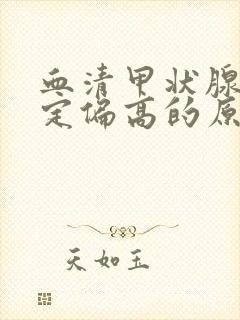 血清甲状腺
定偏高的原
天如玉